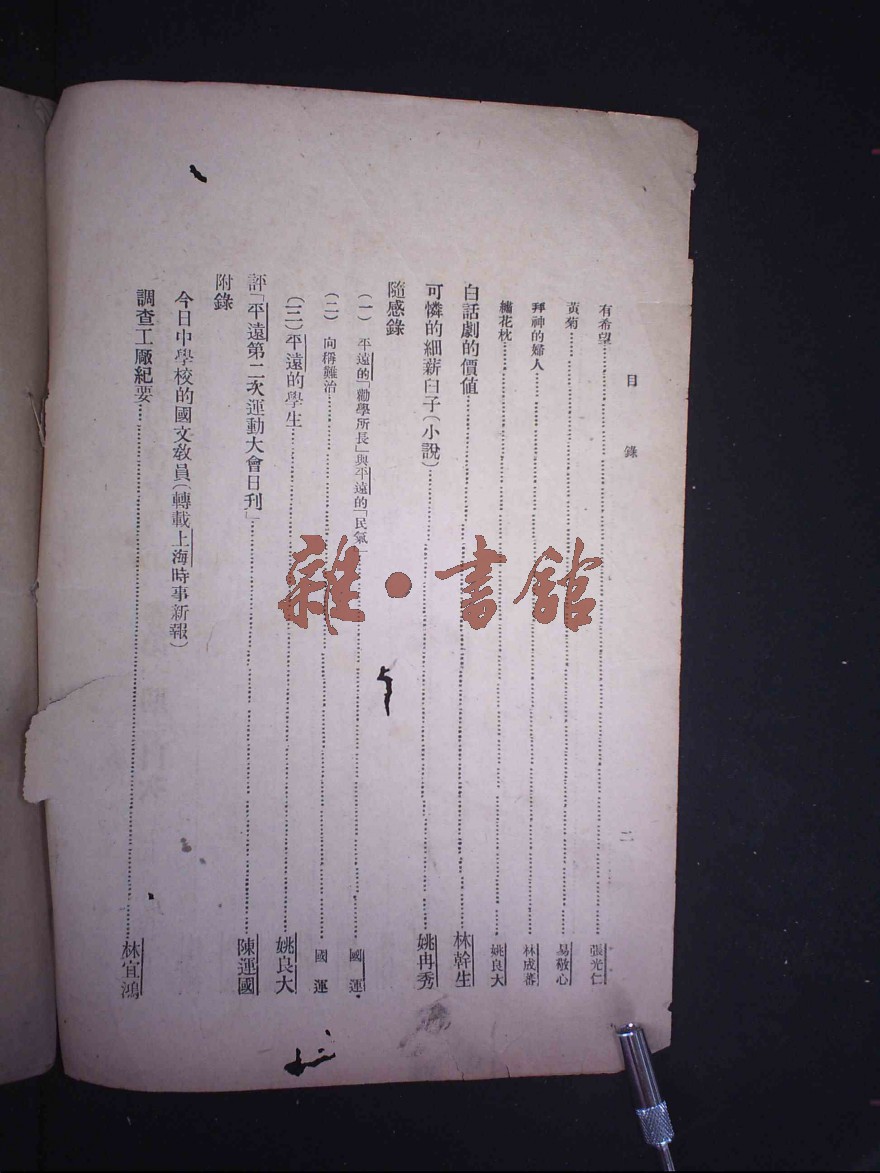 目錄
二
有希望……張光仁
黃菊……易敬心
拜神的婦人……林成蕃
繡花枕……姚良大
白話劇的價値……林幹生
可憐的細薪臼子(小說)……姚冉秀
隨感錄
(一)平遠的「勸學所長」與平遠的「民氣」……國運
(二)向稱難治……國運
(三)平遠的學生……姚良大
評「平遠第二次運動大會日刊」……陳運國
附錄
今日中學校的國文敎員(轉載上海時事新報)
調查工廠紀要……林宜鴻
雜·書館